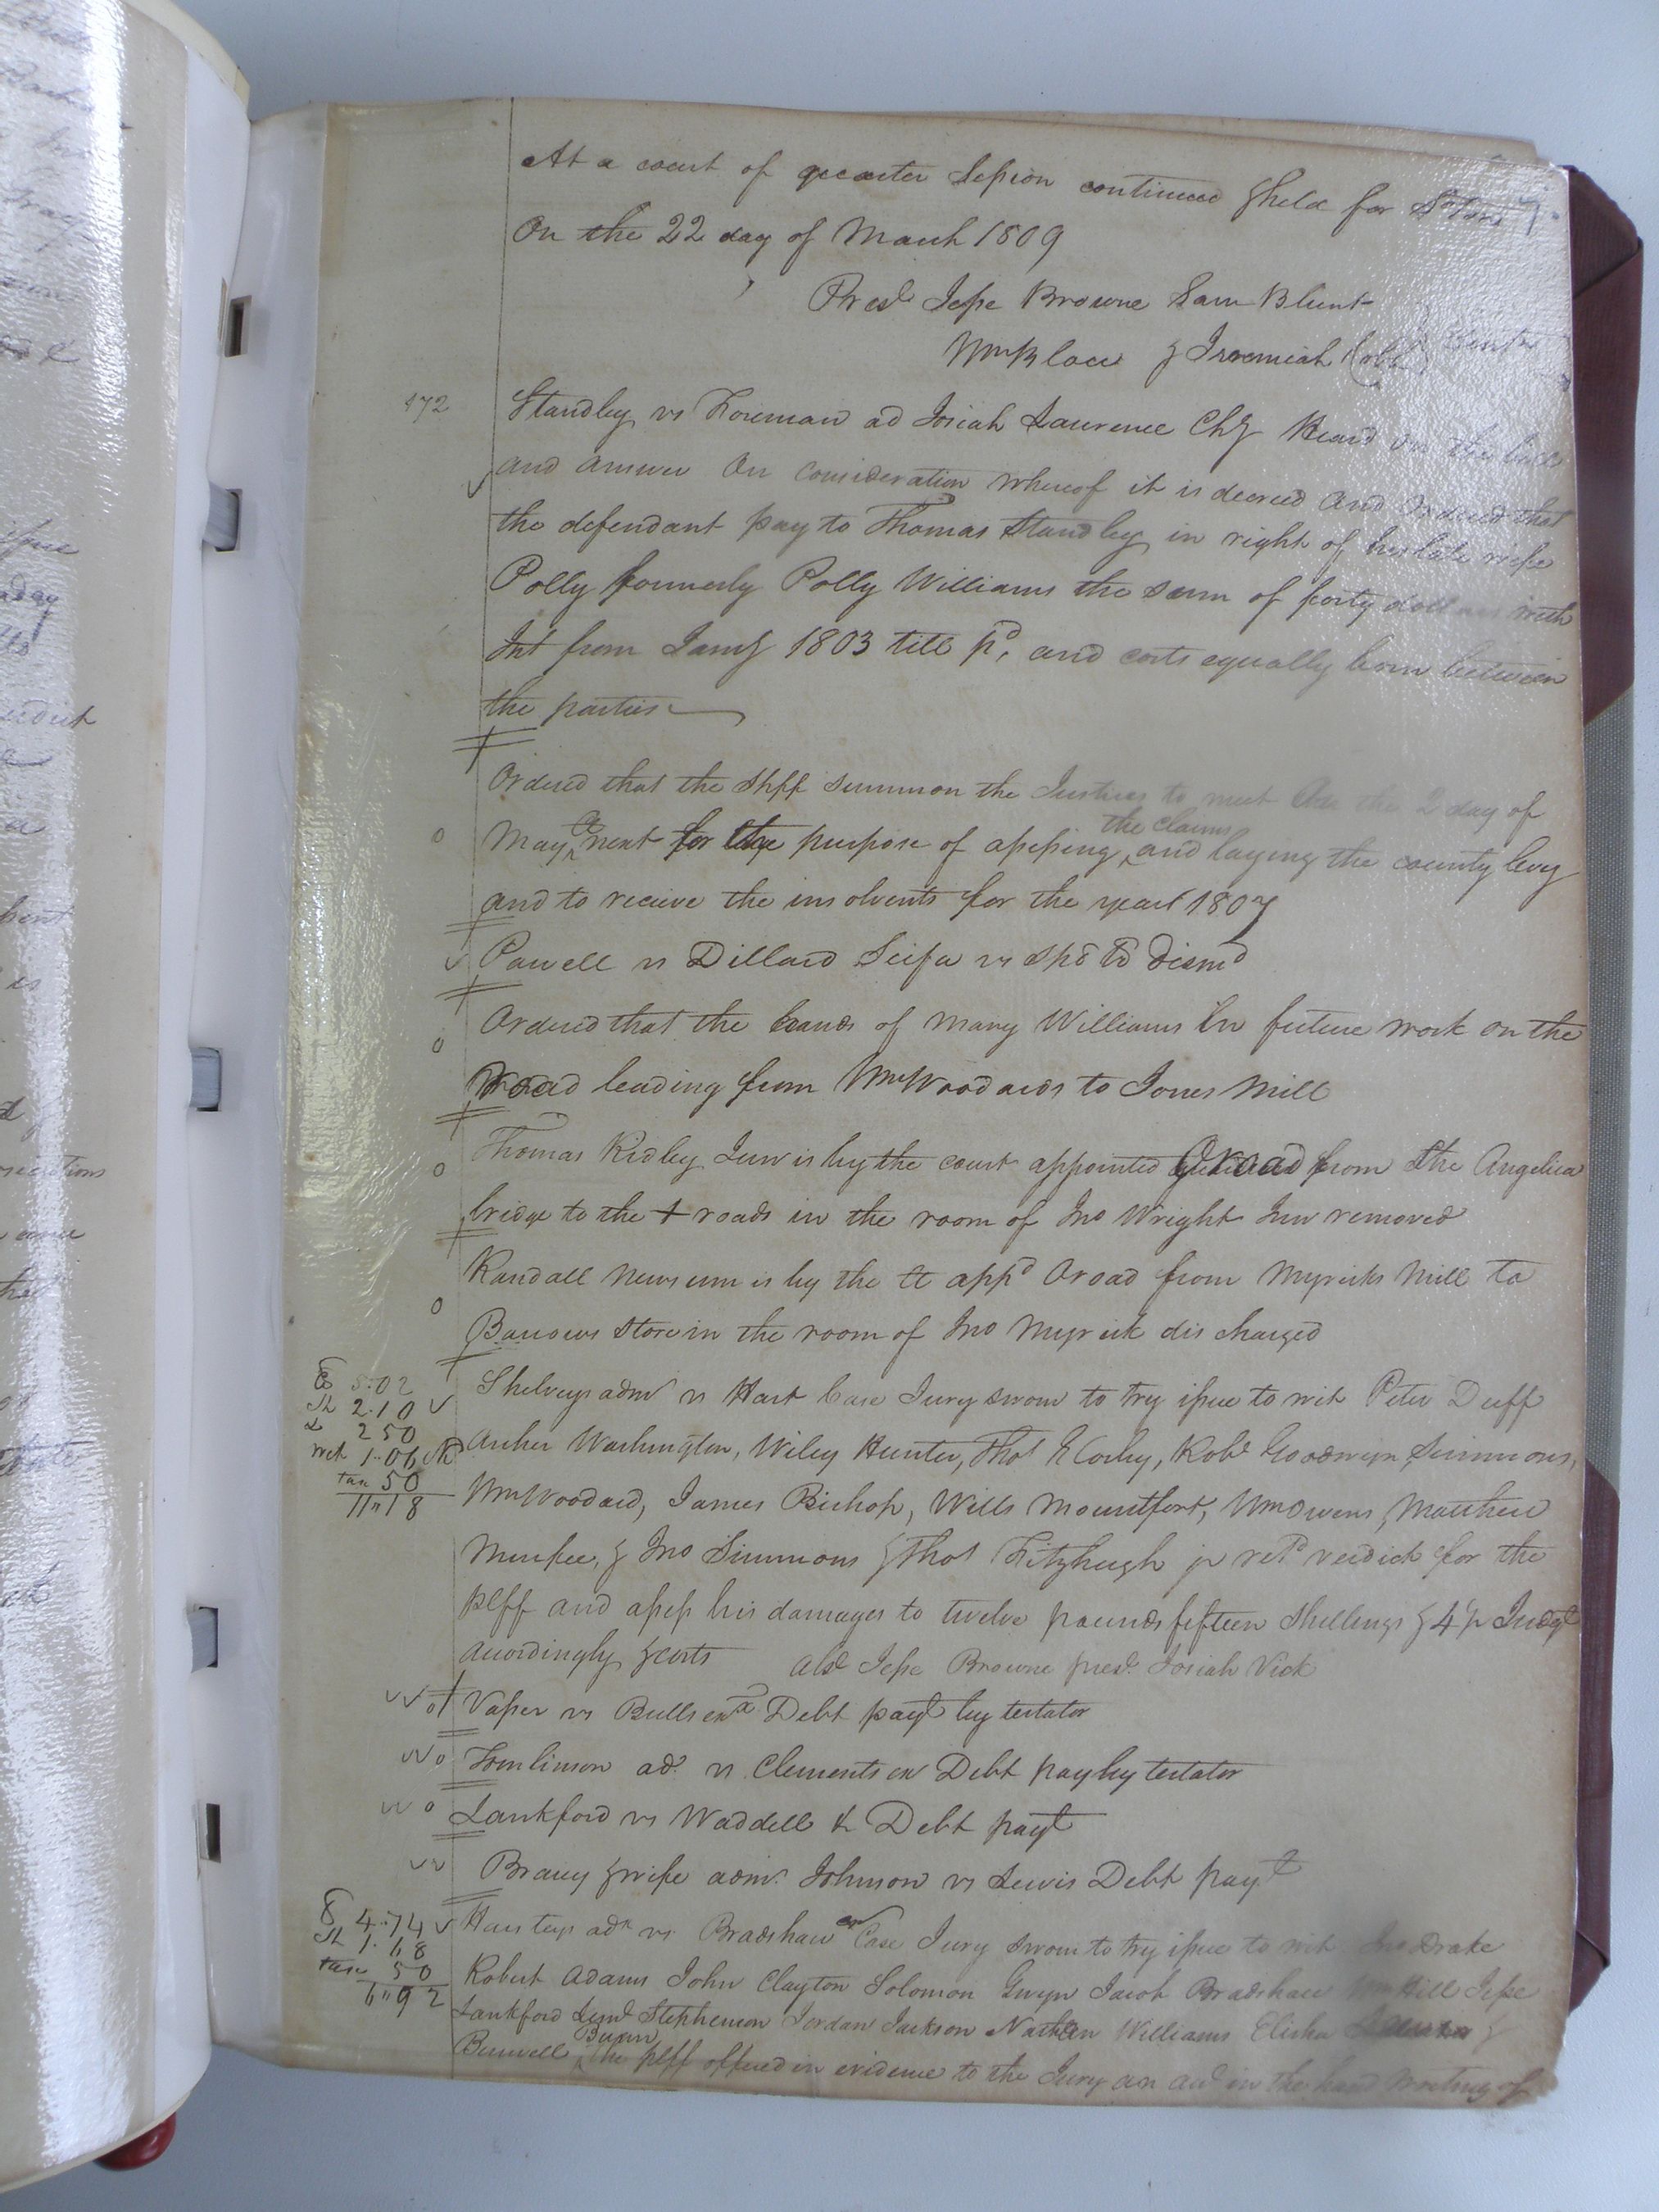 At a court of quarter Session continued & held for
On the 22 day of March 1809
Prest Jesse Browne Sam Blunt
Wm Blow & Jeremiah Cobb
472 Standley vs Foreman ad Josiah Laurence Chy Heard on the bill
and answer On consideration whereof it is decreed and Ordered that
the defendant pay to Thomas Standley in right of his late wife
Polly formerly Polly Williams the sum of forty dollars with
Int from Jany 1803 till pd, and costs equally born between
the parties
Ordered that the Shff summon the Justices to meet On the 2 day of
May next for the purpose of assessing the claims and laying the county levy
and to recieve the insolvents for the year 1807
Powell vs Dillard Scifa vs spd td dismd
Ordered that the hands of Mary Williams in future work on the
road leading from Wm Woodards to Jones Mill
Thomas Ridley Junr is by the court appointed O road from the Angelica
bridge to the + roads in the room of Jno Wright Junr removed
Randall Newsum is by the Ct appd O road from Myricks Mill to
Barrows Store in the room of Jno Myrick discharged
5.02
2.10
2 50
1..06
tax 50
11"18
Shelveys admr vs Hart Case Jury sworn to try issue to wit Peter Duff
Archer Washington, Wiley Hunter, Thos E Corby, Robt Goodwyn Simmons,
Wm Woodard, James Bishop, Wills Mountfort, Wm Owens, Matthew
Murfee, & Jno Simmons & Thos Fitzhugh jr retd verdict for the
plff and assess his damages to twelve pounds fifteen shillings & 4 p Judgt
accordingly & costs Abst Jesse Browne prest Josiah Vick
Vasser vs Bulls exx Debt payt by testator
Tomlinson ad vs Clements ex Debt pay by testator
Lankford vs Waddell & Debt payt
Brauy & wife admr Johnson vs Lewis Debt payt
4..74
1.68
tax 50
6"92
adr vs Bradshaw exr Case Jury sworn to try issue to wit Jno Drake
Robert Adams John Clayton Solomon Gwyn Jacob Bradshaw Wm Hill Jesse
Lankford Stephenson Jordan Jackson Nathan Williams Elisha
Burwell Bunn the plff offered in evidence to the Jury an act in the hand writing of